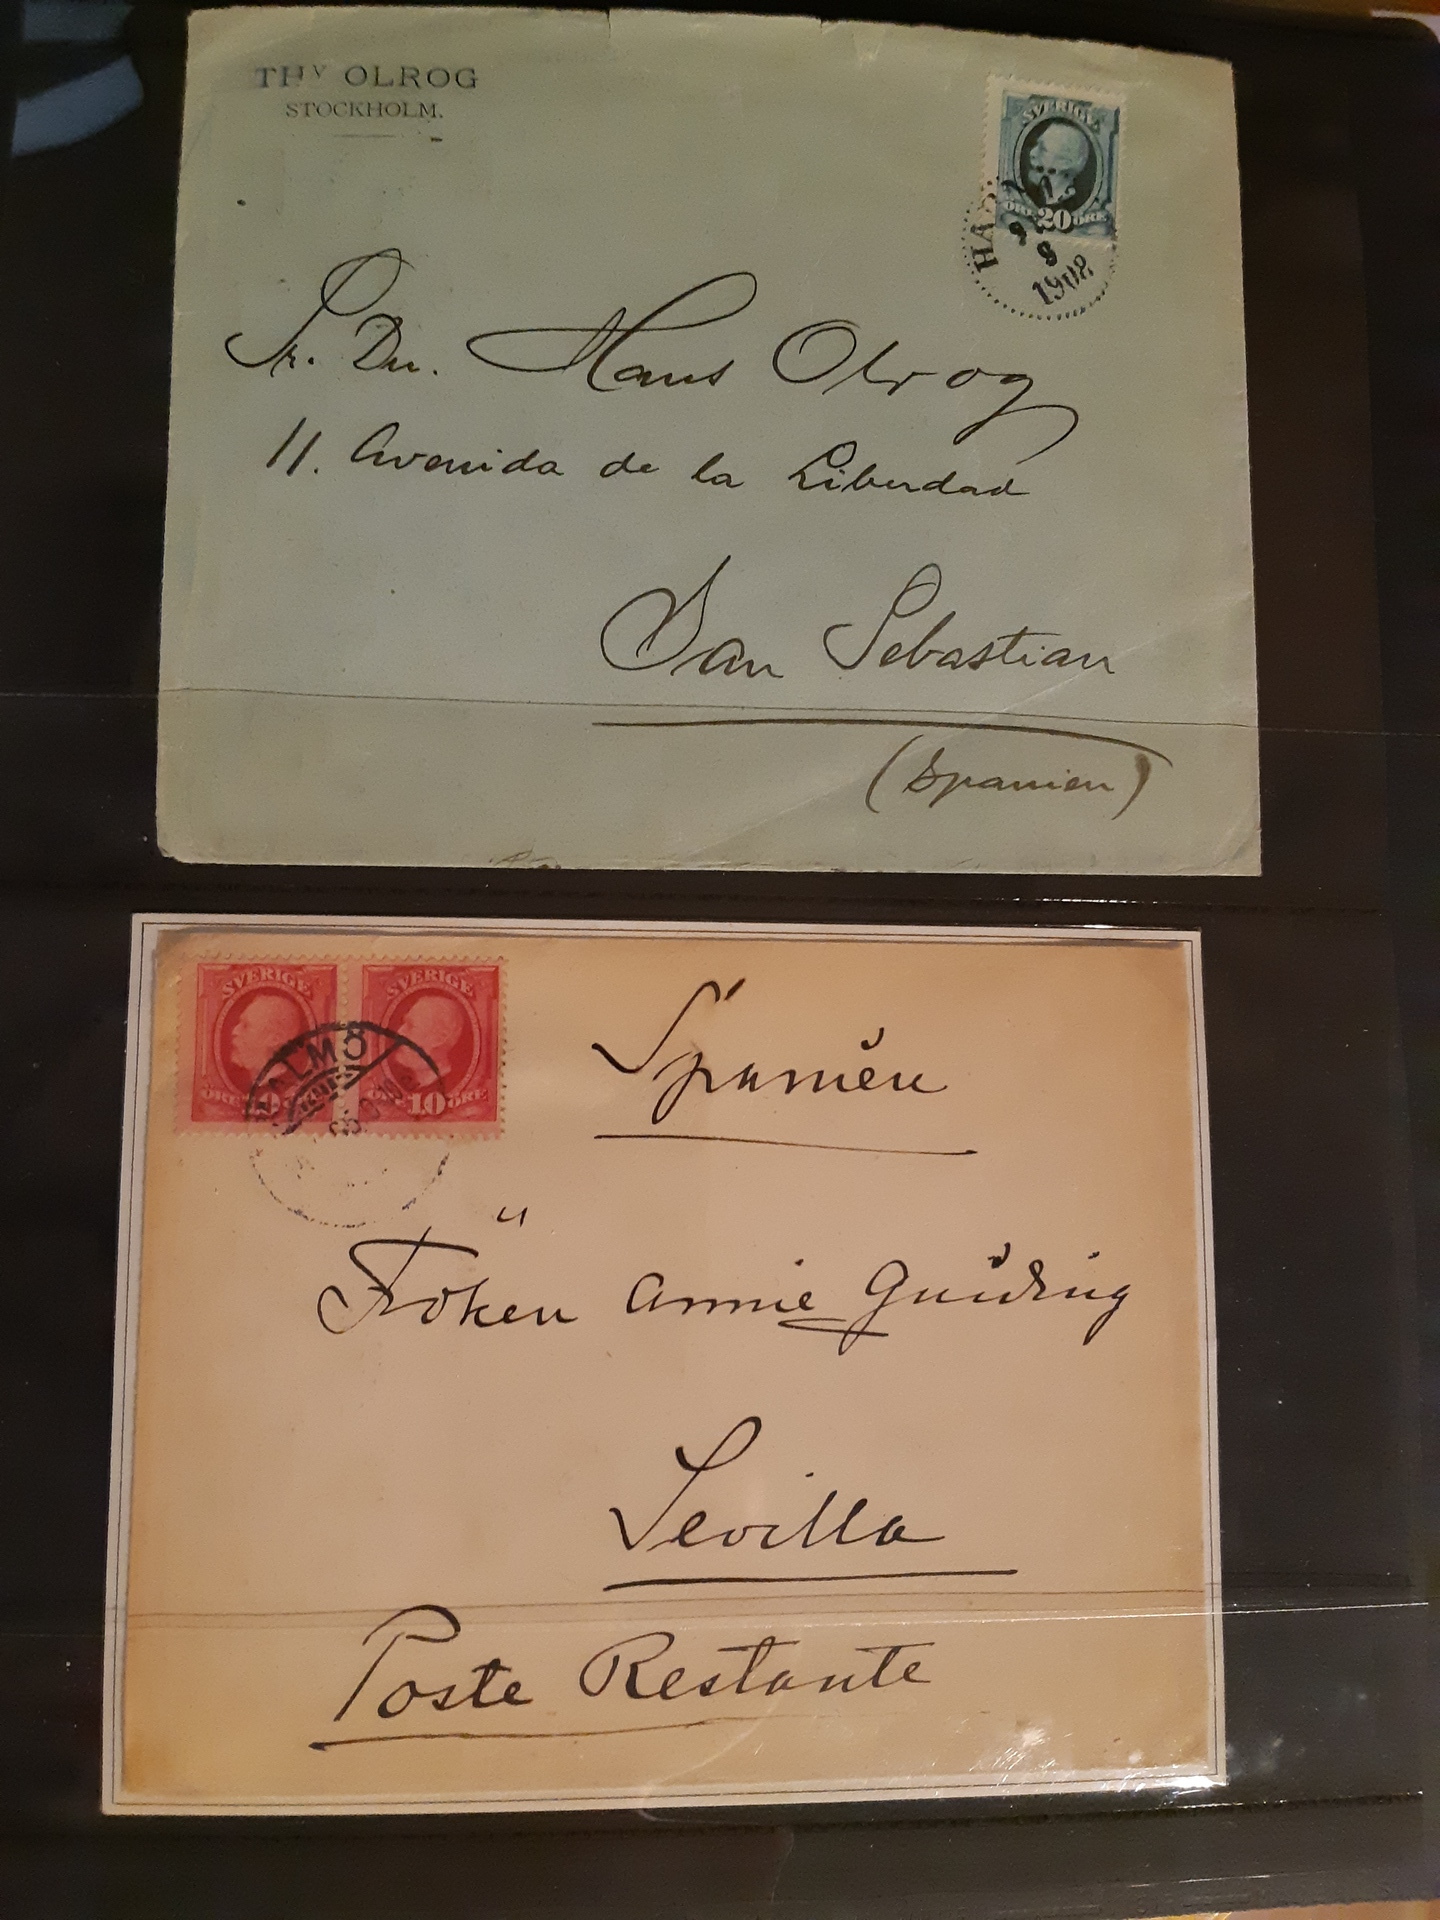 THV OLROG
STOCKHOLM.
SVERIGE
ÖRE 20 ÖRE
1908
Sr. Dn. Hans Olrog
11. Avenida de la Liberdad
San Sebastian
(Spanien)
SVERIGE SVERIGE
ÖRE 10 10 ÖRE
MALMÖ
Spanien
Fröken Annie Guiding
Sevilla
Poste Restante